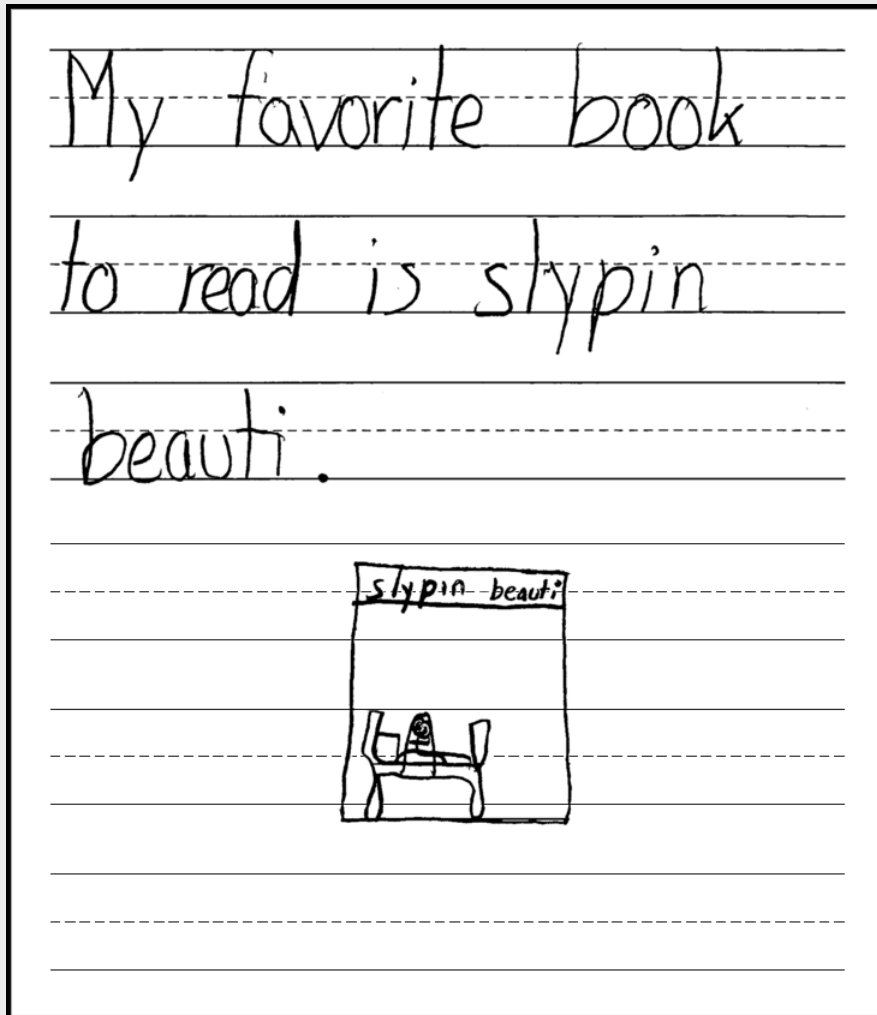 My favorite book
to read is slypin
beauti.
slypin beauti